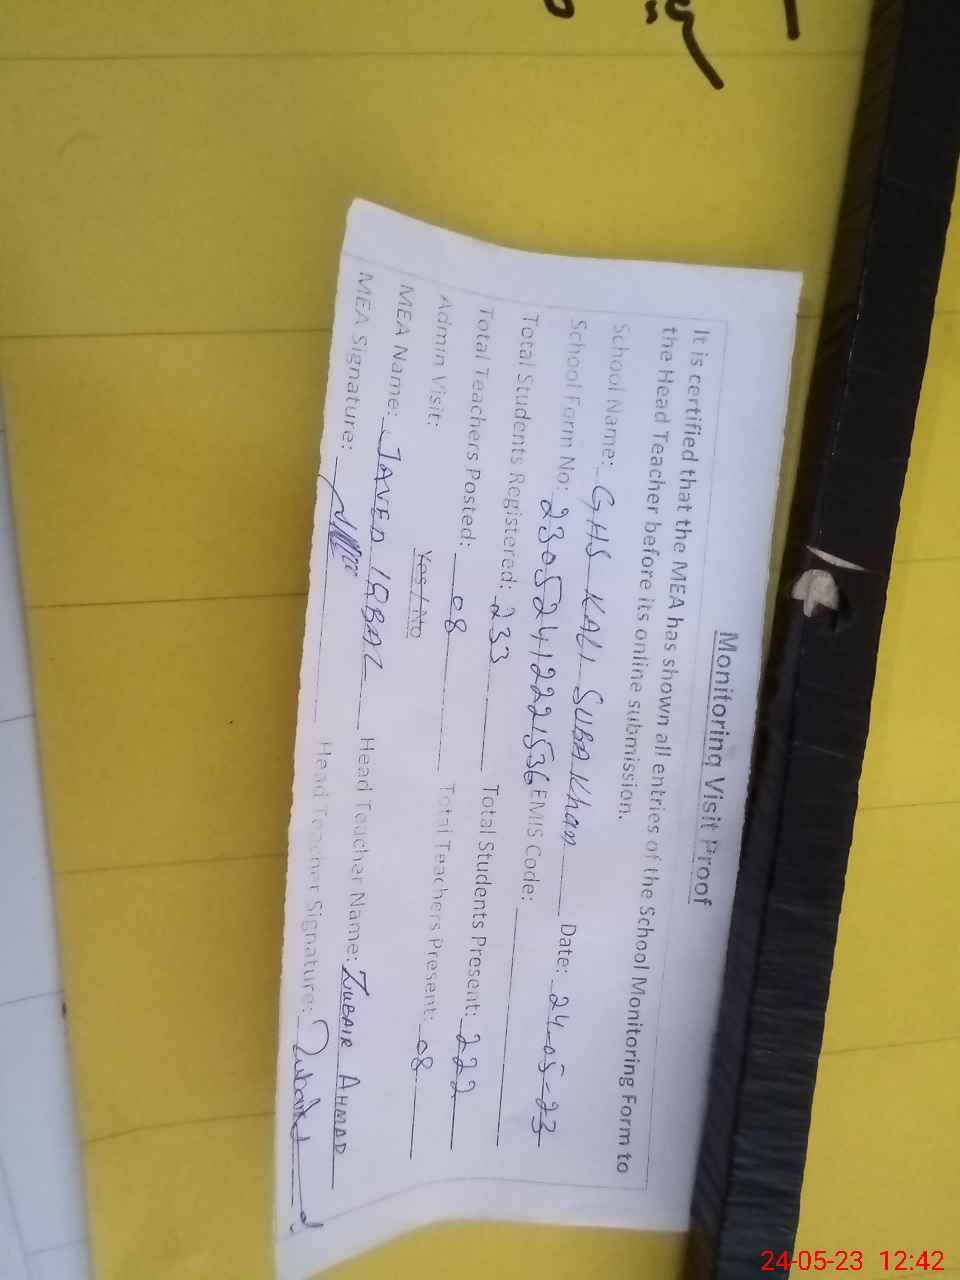 Monitoring Visit Proof
It is certified that the MEA has shown all entries of the School Monitoring Form to
the Head Teacher before its online submission.
School Name: GHS KALI SUBA Khan Date: 24-05-23
School Form No: 23052412221536 EMIS Code:
Total Students Registered: 233 Total Students Present: 222
Total Teachers Posted: 08 Total Teachers Present: 08
Admin Visit: Yes / No
MEA Name: JAVED IQBAL Head Teacher Name: ZUBAIR AHMAD
MEA Signature: Head Teacher Signature:
24-05-23 12:42